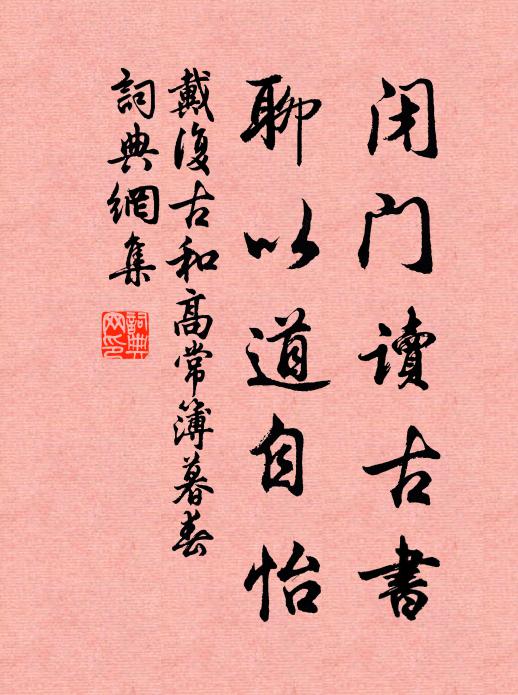 闭门读古書
聊以道自怡
戴復古和高常簿暮春
詞典網集
詞典
网印